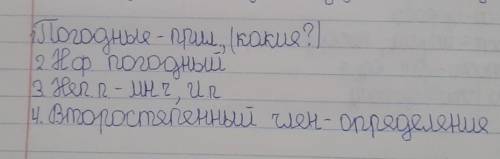 1. Погодные - прил., (какие?)
2. Нф погодный
3. Неп п - мн ч, И п
4. Второстепенный член - определение